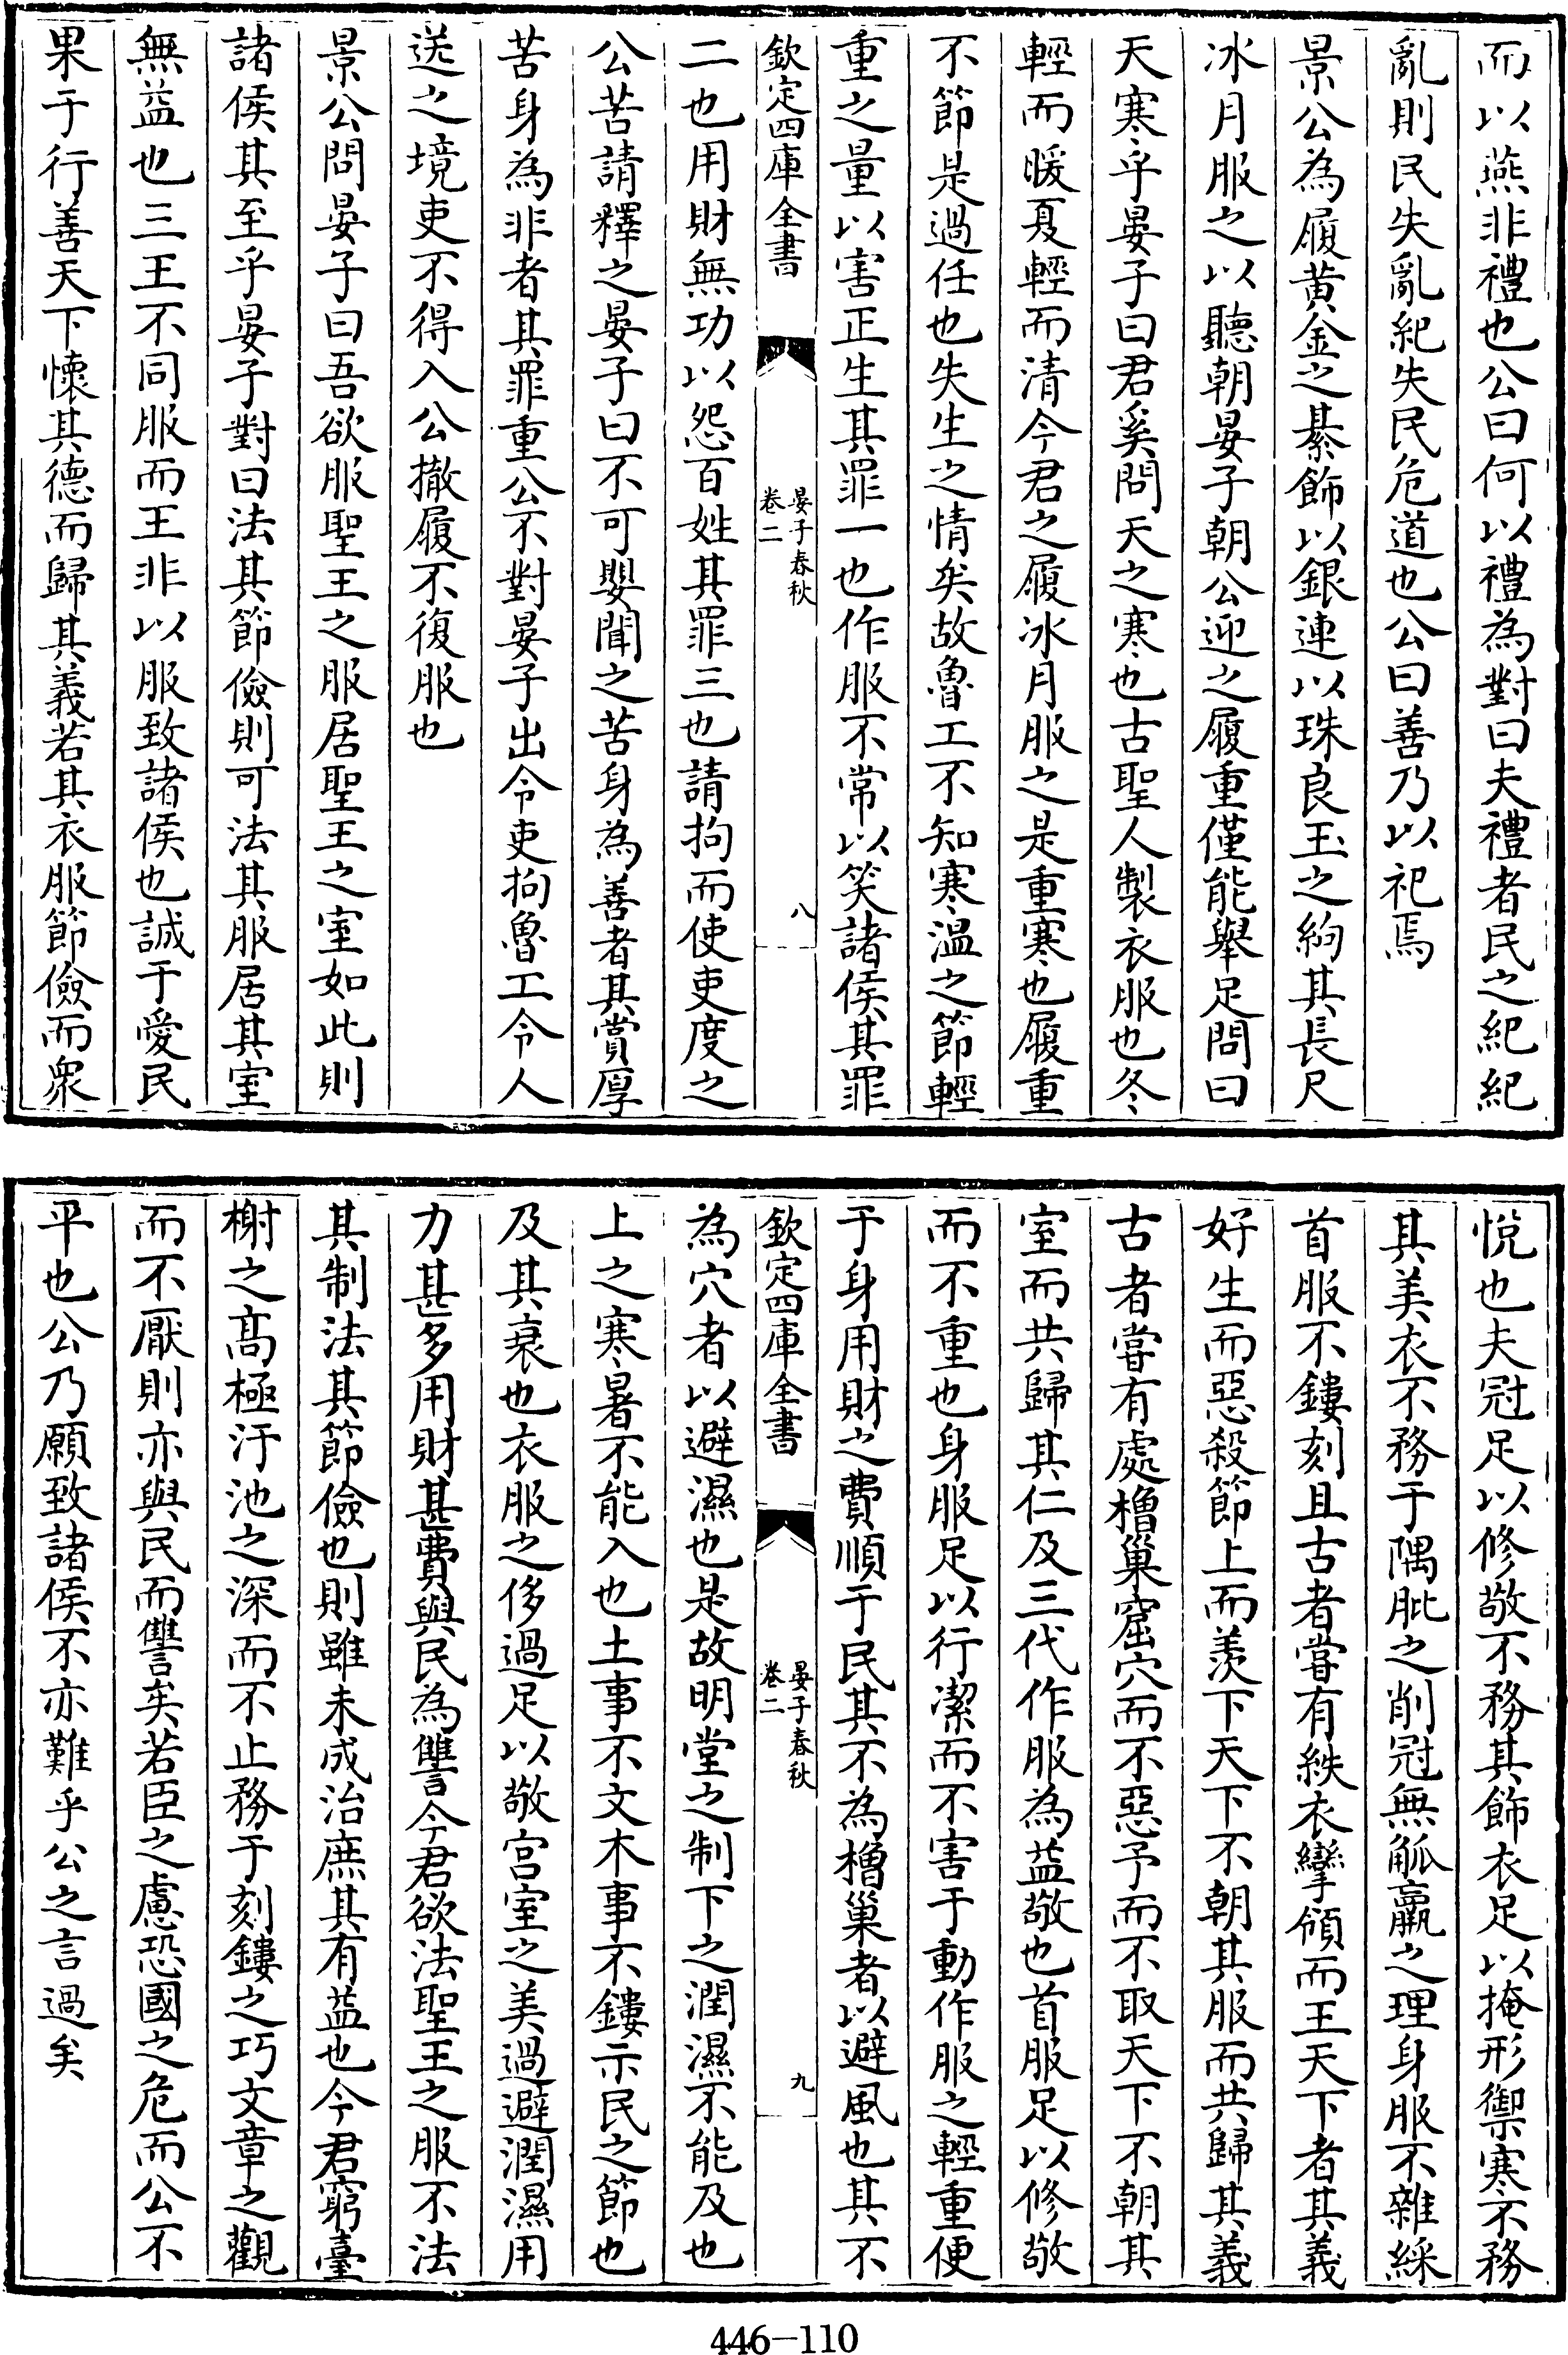 而以燕非禮也公曰何以禮為對曰夫禮者民之紀紀
亂則民失亂紀失民危道也公曰善乃以祀焉
景公為履黄金之綦飾以銀連以珠良玉之絇其長尺
冰月服之以聽朝晏子朝公迎之履重僅能舉足問曰
天寒乎晏子曰君奚問天之寒也古聖人製衣服也冬
輕而暖夏輕而清今君之履冰月服之是重寒也履重
不節是過任也失生之情矣故魯工不知寒温之節輕
重之量以害正生其罪一也作服不常以笑諸侯其罪
欽定四庫全書
晏子春秋
卷二
八
二也用財無功以怨百姓其罪三也請拘而使吏度之
公苦請釋之晏子曰不可嬰聞之苦身為善者其賞厚
苦身為非者其罪重公不對晏子出令吏拘魯工令人
送之境吏不得入公撤履不復服也
景公問晏子曰吾欲服聖王之服居聖王之室如此則
諸侯其至乎晏子對曰法其節儉則可法其服居其室
無益也三王不同服而王非以服致諸侯也誠于愛民
果于行善天下懷其德而歸其義若其衣服節儉而衆
悅也夫冠足以修敬不務其飾衣足以掩形禦寒不務
其美衣不務于隅肶之削冠無觚羸之理身服不雜綵
首服不鏤刻且古者嘗有紩衣攣領而王天下者其義
好生而惡殺節上而羨下天下不朝其服而共歸其義
古者嘗有處橧巢窟穴而不惡予而不取天下不朝其
室而共歸其仁及三代作服為益敬也首服足以修敬
而不重也身服足以行潔而不害于動作服之輕重便
于身用財之費順于民其不為橧巢者以避風也其不
欽定四庫全書
晏子春秋
卷二
九
為穴者以避濕也是故明堂之制下之潤濕不能及也
上之寒暑不能入也土事不文木事不鏤示民之節也
及其衰也衣服之侈過足以敬宫室之美過避潤濕用
力甚多用財甚費與民為讐今君欲法聖王之服不法
其制法其節儉也則雖未成治庶其有益也今君窮臺
榭之高極汙池之深而不止務于刻鏤之巧文章之觀
而不厭則亦與民而讐矣若臣之慮恐國之危而公不
平也公乃願致諸侯不亦難乎公之言過矣
446-110